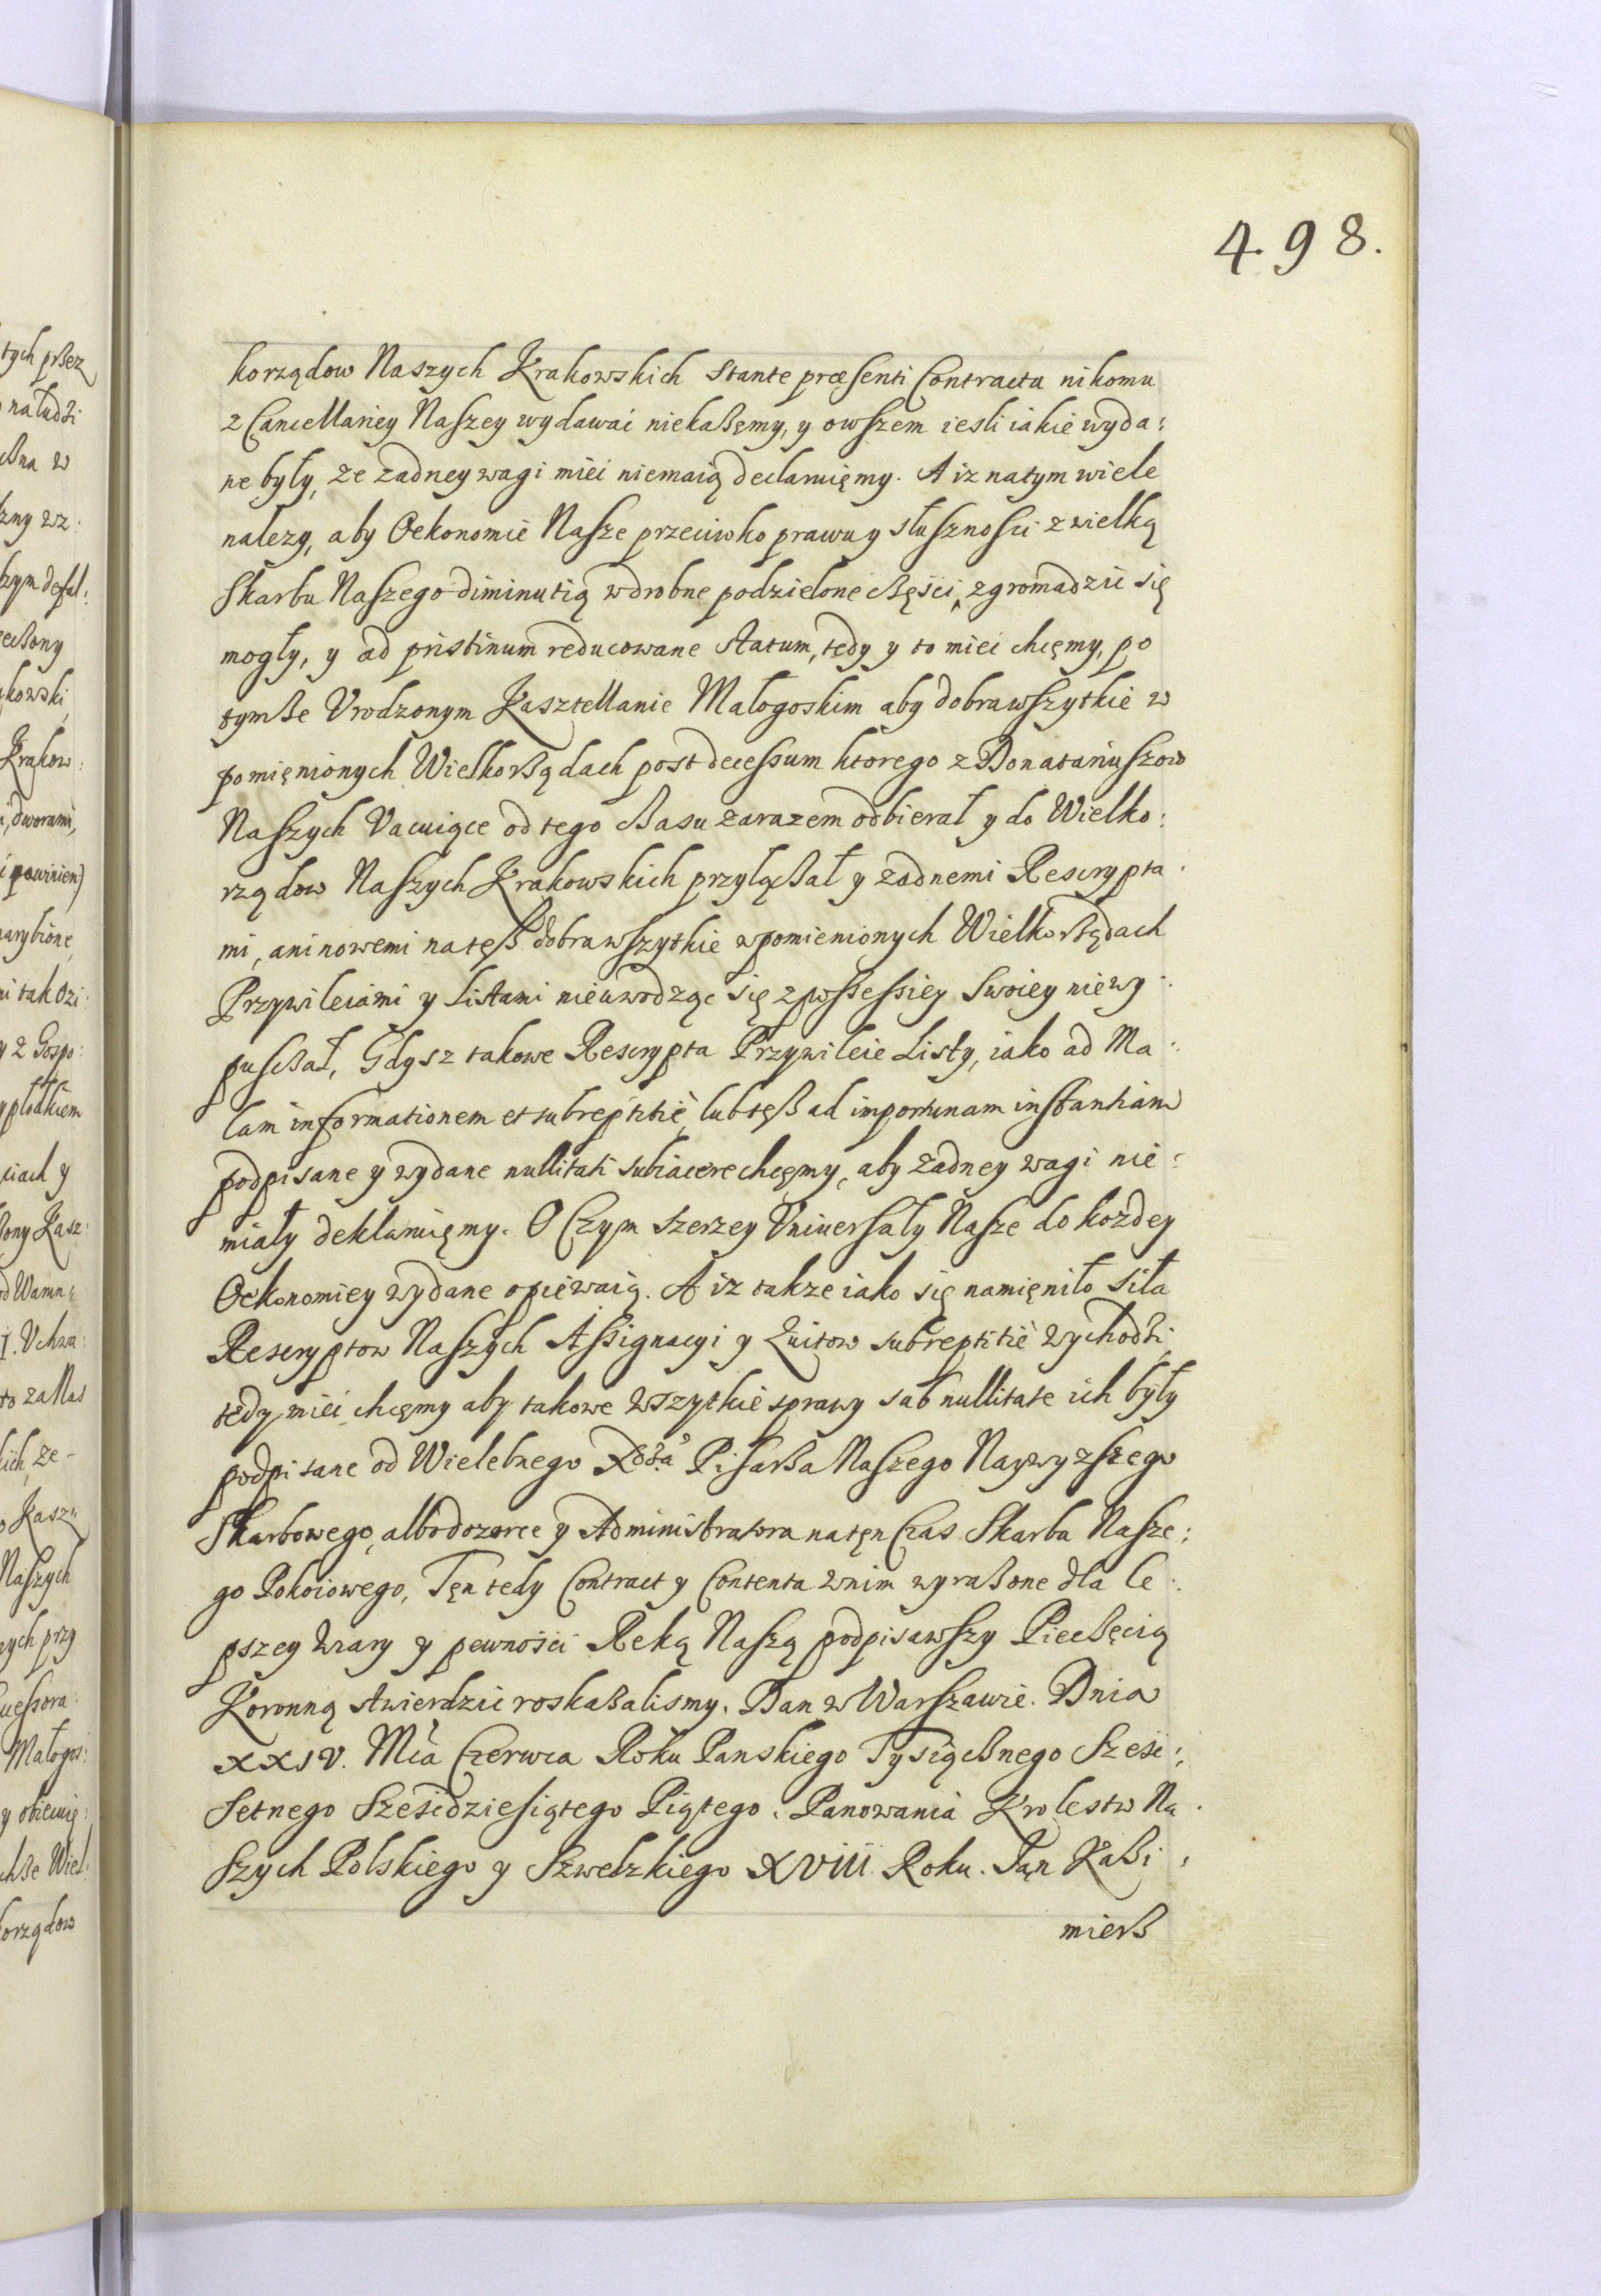 498.
korządow Naszych Krakowskich stante præsenti Contractu nikomu
z Cancellariey Naszey wydawać niekaßęmy, y owszem iesli iakie wyda:
ne były, ze zadney wagi mieć niemaią declaruięmy. A iz natym wiele
nalezy, aby Oekonomie Nasze przeciwko prawu y słusznosci z wielką
Skarbu Naszego diminutią wdrobne podzielone cßęści, zgromadzić się
mogły, y ad pristinum reducowane statum, tedy y to mieć chcęmy, po
tymße Vrodzonym Kasztellanie Małogoskim aby dobra wszytkie w
pomięnionych Wielkoßądach post decessum ktorego z Donatariuszow
Naszych Vacuiące od tego cßasu zarazem odbierał y do Wielko:
rządow Naszych Krakowskich przyłącßał y zadnemi Rescrypta:
mi, ani nowemi natęß dobra wszytkie wpomienionych Wielkoßądach
Przywileiami y Listami nieuwodząc się z possessiey swoiey niewy:
puscßał, Gdysz takowe Rescrypta Przywileie Listy, iako ad Ma:
lam informationem et subreptitiè, lub teß ad importunam instantiam
podpisane y wydane nullitati subiacere chcęmy, aby zadney wagi nie:
miały deklaruięmy. O Czym szerzey Vniuersały Nasze do kozdey
Oekonomiey wydane opiewaią. A iz takze iako się namięniło siła
Rescryptow Naszych Assignacyi y Quitow subreptitiè wychodźi,
tedy mieć chcęmy aby takowe wszytkie sprawy sub nullitate ich były
podpisane od Wielebnego Xdza Pisarßa Naszego Naywyzszego
Skarbowego, albo dozorce y Administratora natęn Czas Skarbu Nasze:
go Pokoiowego, Tęn tedy Contract y Contenta wnim wyraßone dla le:
pszey wiary y pewnosci Ręką Naszą podpisawszy Piecßęcią
Koronną stwierdzić roskaßalismy. Dan w Warszawie. Dnia
XXIV. Mca Czerwca Roku Panskiego Tysiącßnego Sześć:
setnego Sześćdziesiątego Piątego. Panowania Krolestw Na:
szych Polskiego y Szwedzkiego XVIII. Roku. Jan Kaßi:
mierß